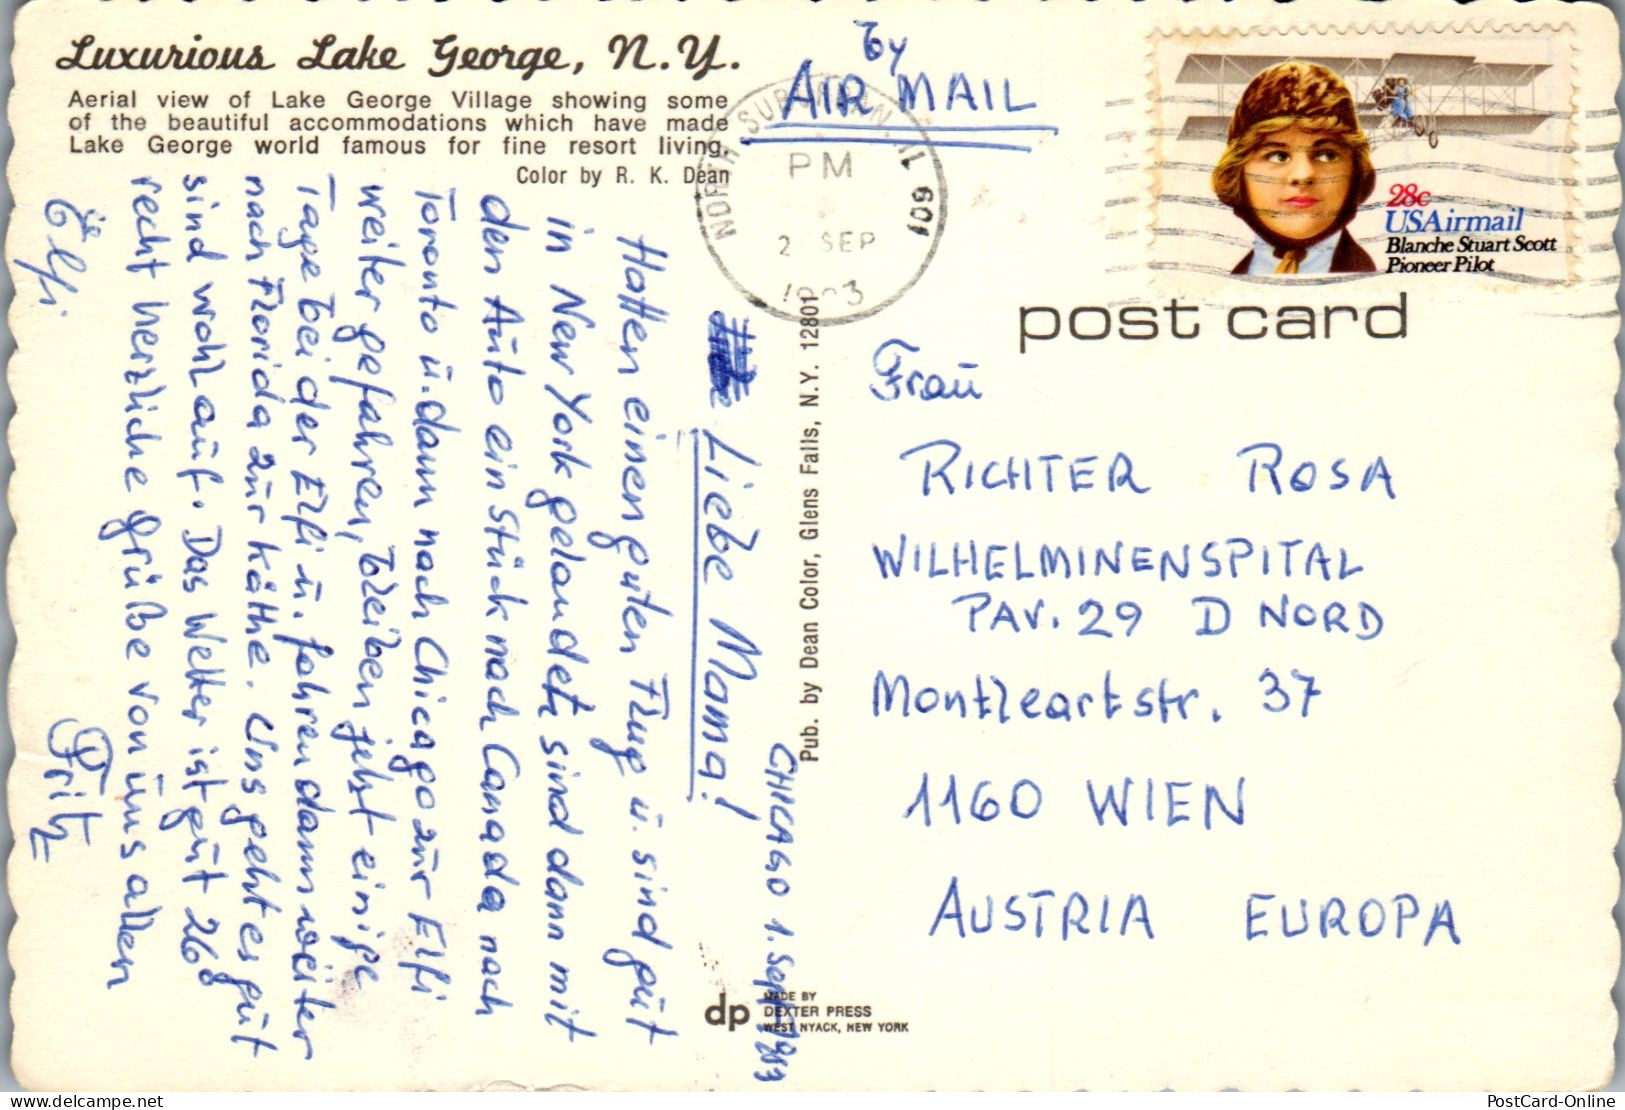 Luxurious Lake George, N.Y.
Aerial view of Lake George Village showing some
of the beautiful accommodations which have made
Lake George world famous for fine resort living.
Color by R. K. Dean
By
AIR MAIL
NORTH SUBURBAN, IL 601
PM
2 SEP
28c
USAirmail
Blanche Stuart Scott
Pioneer Pilot
post card
CHICAGO 1. Sept. 1983
Liebe Mama!
Hatten einen guten Flug u. sind gut
in New York gelandet, sind dann mit
den Auto ein Stück nach Canada nach
Toronto u. dann nach Chicago zur Elfi
weiter gefahren, bleiben jetzt einige
Tage bei der Elfi u. fahren dann weiter
nach Florida zur Käthe. Uns geht es gut
sind wohl auf. Das Wetter ist gut 26°
recht herzliche Grüße von uns allen
Elfi Fritz
Pub. by Dean Color, Glens Falls, N.Y. 12801
Frau
RICHTER ROSA
WILHELMINENSPITAL
PAV. 29 D NORD
Montleartstr. 37
1160 WIEN
AUSTRIA EUROPA
dp MADE BY
DEXTER PRESS
WEST NYACK, NEW YORK
PostCard-Online